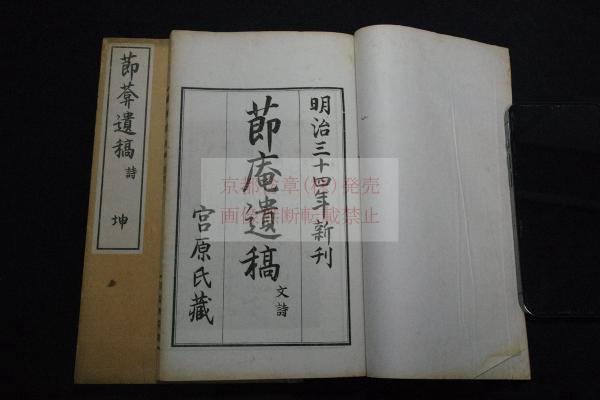 節葊遺稿 詩 坤
明治三十四年新刊
節庵遺稿 文詩
宮原氏藏
京都文章(株)発売
画像無断転載禁止